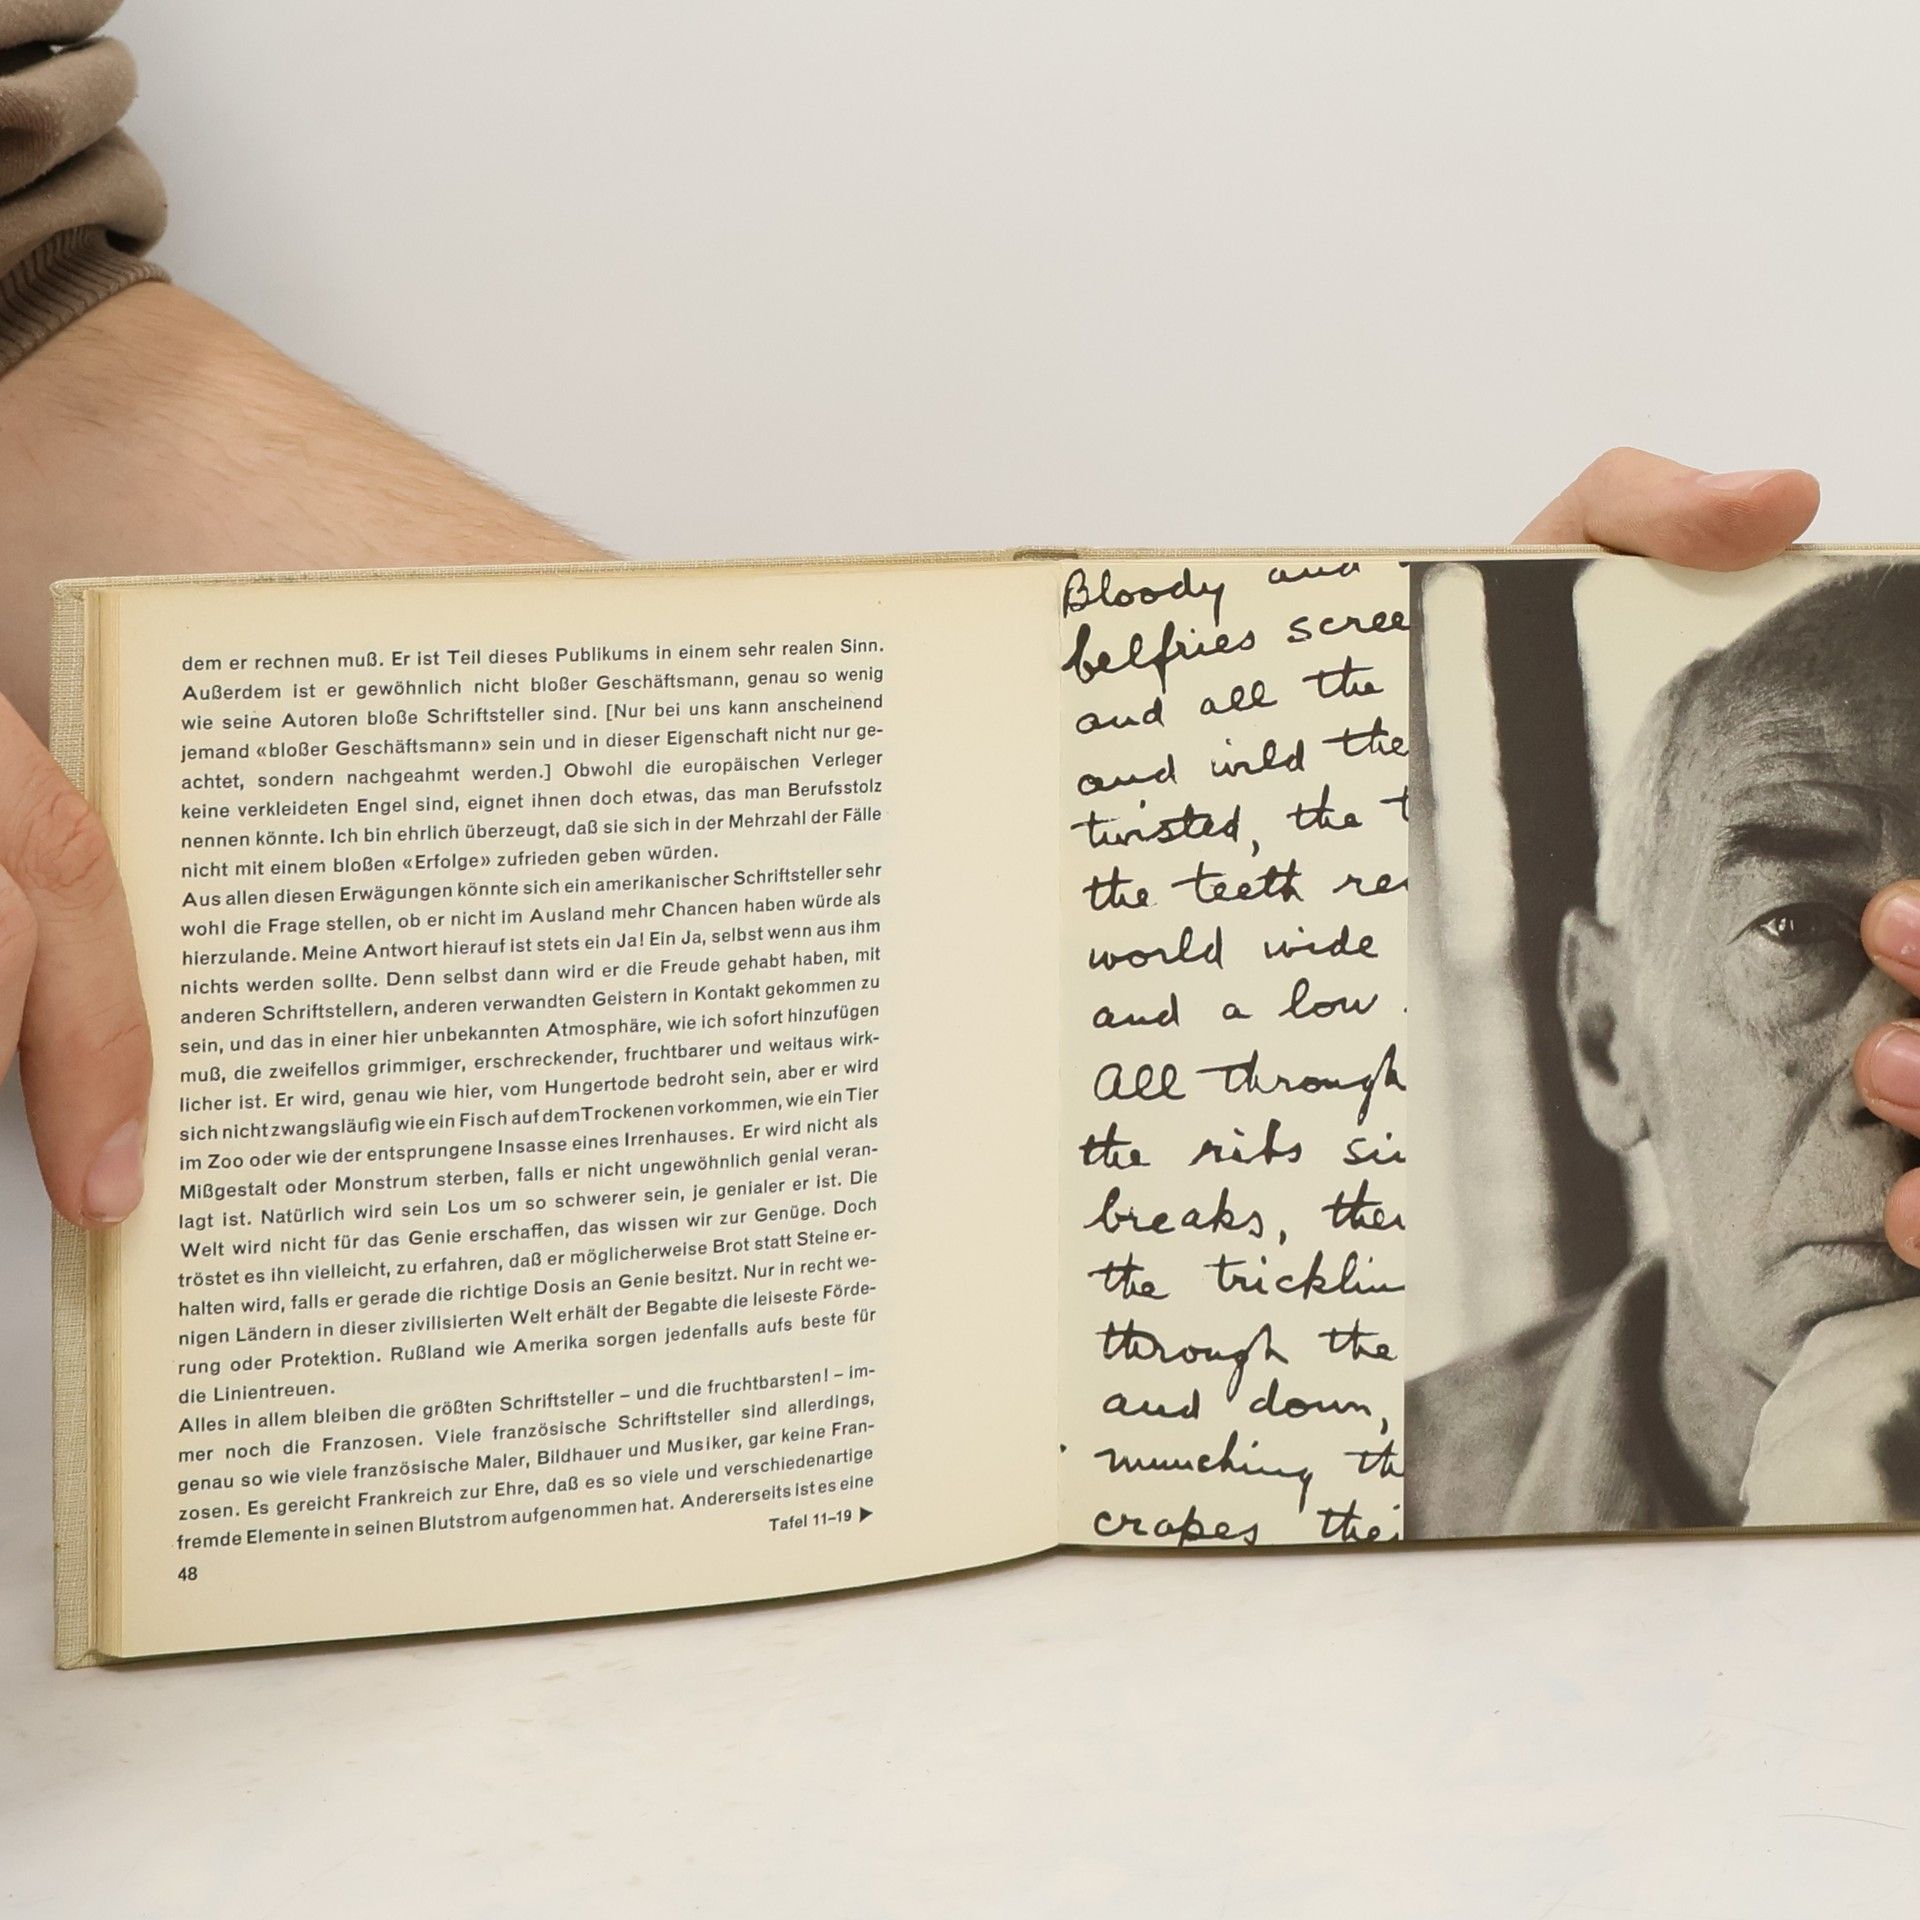 dem er rechnen muß. Er ist Teil dieses Publikums in einem sehr realen Sinn.
Außerdem ist er gewöhnlich nicht bloßer Geschäftsmann, genau so wenig
wie seine Autoren bloße Schriftsteller sind. [Nur bei uns kann anscheinend
jemand «bloßer Geschäftsmann» sein und in dieser Eigenschaft nicht nur ge-
achtet, sondern nachgeahmt werden.] Obwohl die europäischen Verleger
keine verkleideten Engel sind, eignet ihnen doch etwas, das man Berufsstolz
nennen könnte. Ich bin ehrlich überzeugt, daß sie sich in der Mehrzahl der Fälle
nicht mit einem bloßen «Erfolge» zufrieden geben würden.
Aus allen diesen Erwägungen könnte sich ein amerikanischer Schriftsteller sehr
wohl die Frage stellen, ob er nicht im Ausland mehr Chancen haben würde als
hierzulande. Meine Antwort hierauf ist stets ein Ja! Ein Ja, selbst wenn aus ihm
nichts werden sollte. Denn selbst dann wird er die Freude gehabt haben, mit
anderen Schriftstellern, anderen verwandten Geistern in Kontakt gekommen zu
sein, und das in einer hier unbekannten Atmosphäre, wie ich sofort hinzufügen
muß, die zweifellos grimmiger, erschreckender, fruchtbarer und weitaus wirk-
licher ist. Er wird, genau wie hier, vom Hungertode bedroht sein, aber er wird
sich nicht zwangsläufig wie ein Fisch auf dem Trockenen vorkommen, wie ein Tier
im Zoo oder wie der entsprungene Insasse eines Irrenhauses. Er wird nicht als
Mißgestalt oder Monstrum sterben, falls er nicht ungewöhnlich genial veran-
lagt ist. Natürlich wird sein Los um so schwerer sein, je genialer er ist. Die
Welt wird nicht für das Genie erschaffen, das wissen wir zur Genüge. Doch
tröstet es ihn vielleicht, zu erfahren, daß er möglicherweise Brot statt Steine er-
halten wird, falls er gerade die richtige Dosis an Genie besitzt. Nur in recht we-
nigen Ländern in dieser zivilisierten Welt erhält der Begabte die leiseste Förde-
rung oder Protektion. Rußland wie Amerika sorgen jedenfalls aufs beste für
die Linientreuen.
Alles in allem bleiben die größten Schriftsteller – und die fruchtbarsten! – im-
mer noch die Franzosen. Viele französische Schriftsteller sind allerdings,
genau so wie viele französische Maler, Bildhauer und Musiker, gar keine Fran-
zosen. Es gereicht Frankreich zur Ehre, daß es so viele und verschiedenartige
fremde Elemente in seinen Blutstrom aufgenommen hat. Andererseits ist es eine
Tafel 11–19 ►
48
Bloody and
belfries scree
and all the
and wild the
twisted, the t
the teeth re
world wide
and a low
All through
the ribs si
breaks, the
the tricklin
through the
and down,
munching th
crapes thei